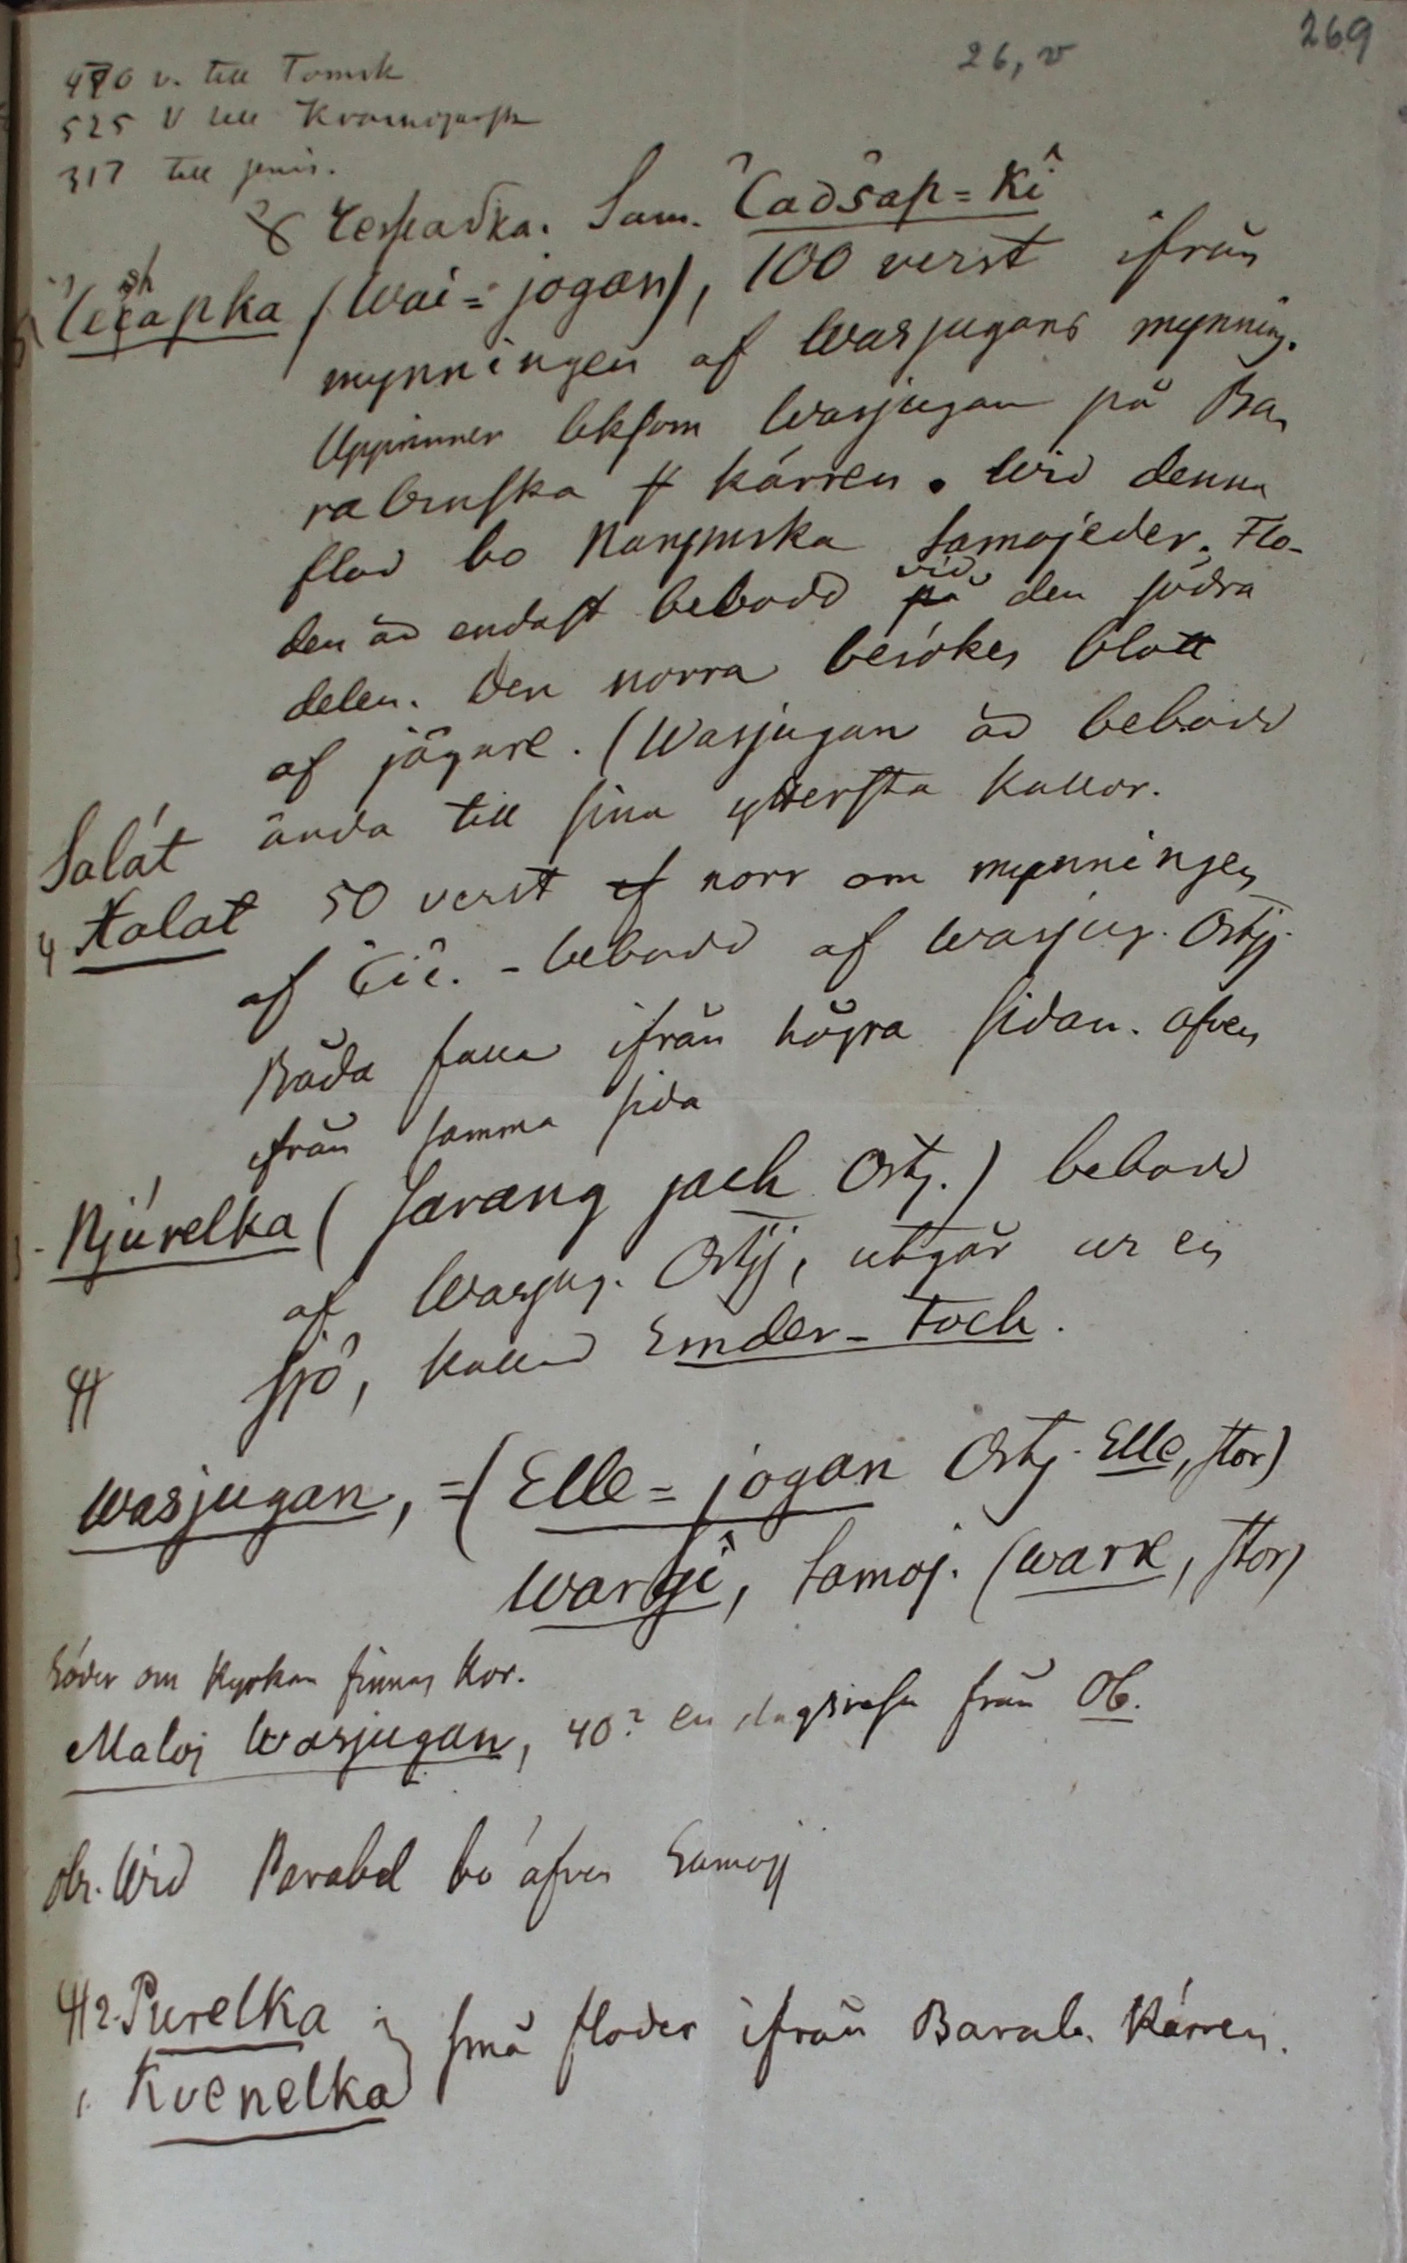 269
26, v
470 v. till Tomsk
525 V till Krasnojarsk
317 till jenis.
Чешапка. Sam. Čadšap=Kî
Češapka (Wai=jogan), 100 verst ifrån
mynningen af Wasjugans mynning.
Upprinner liksom Wasjugan på Ba-
rabinska kärren. Wid denna
flod bo Narymska Samojeder. Flo-
den är endast bebodd vid den södra
delen. Den norra besökes blott
af jägare. (Wasjugan är bebodd
ända till sina yttersta källor.
Salát
4 Kalat 50 verst norr om mynningen
af Čič. - bebodd af Wasjug. Ostjj.
Båda falla ifrån högra sidan. äfven
ifrån samma sida
Njúrelka (Jarang jach Ostj.) bebodd
af Wasjug. Ostjj, utgår ur en
sjö, kallad Emder-Toch.
Wasjugan, =(Elle=jogan Ostj. Elle, stor)
Wargî, Samoj. (Wark, stor)
Söder om Kyrkan finnas Kor.
Maloj Wasjugan, 40? en dagsresa från Ob.
Obs. Wid Parabel bo äfven Samojj
2. Purelka
1. Kvenelka } små floder ifrån Barab. Kärren.